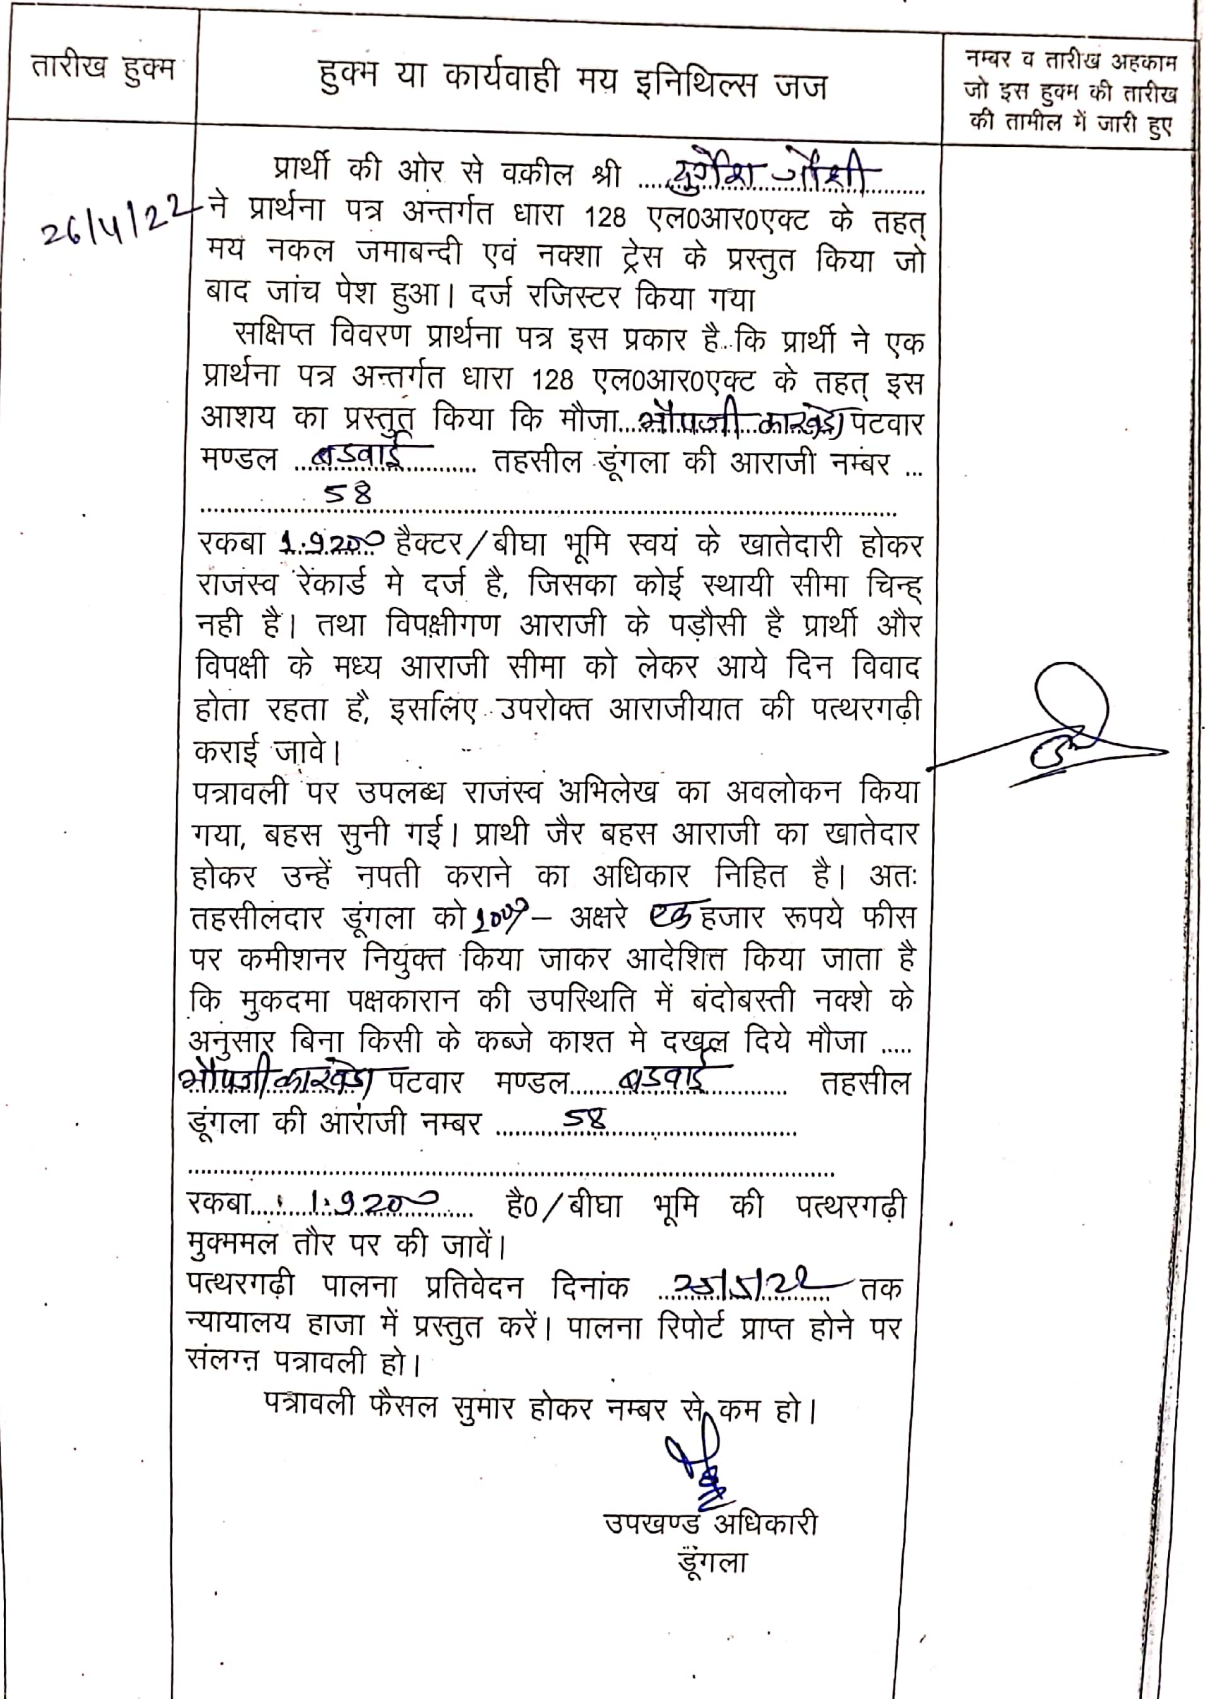 तारीख हुक्म
हुक्म या कार्यवाही मय इनिथिल्स जज
नम्बर व तारीख अहकाम
जो इस हुक्म की तारीख
की तामील में जारी हुए
26/4/22
प्रार्थी की ओर से वकील श्री ..............
ने प्रार्थना पत्र अन्तर्गत धारा 128 एल0आर0एक्ट के तहत्
मय नकल जमाबन्दी एवं नक्शा ट्रेस के प्रस्तुत किया जो
बाद जांच पेश हुआ। दर्ज रजिस्टर किया गया
सक्षिप्त विवरण प्रार्थना पत्र इस प्रकार है कि प्रार्थी ने एक
प्रार्थना पत्र अन्तर्गत धारा 128 एल0आर0एक्ट के तहत् इस
आशय का प्रस्तुत किया कि मौजा भोपजी का खेडा पटवार
मण्डल बडवाई तहसील डूंगला की आराजी नम्बर ...
58
रकबा 1.9200 हैक्टर/बीघा भूमि स्वयं के खातेदारी होकर
राजंस्व रेंकार्ड मे दर्ज है, जिसका कोई स्थायी सीमा चिन्ह्
नही है। तथा विपक्षीगण आराजी के पड़ौसी है प्रार्थी और
विपक्षी के मध्य आराजी सीमा को लेकर आये दिन विवाद
होता रहता है, इसलिए उपरोक्त आराजीयात की पत्थरगढ़ी
कराई जावे।
पत्रावली पर उपलब्ध राजंस्व अभिलेख का अवलोकन किया
गया, बहस सुनी गई। प्राथी जैर बहस आराजी का खातेदार
होकर उन्हें नपती कराने का अधिकार निहित है। अतः
तहसीलदार डूंगला को 1000/- अक्षरे एक हजार रूपये फीस
पर कमीशनर नियुक्त किया जाकर आदेशित किया जाता है
कि मुकदमा पक्षकारान की उपस्थिति में बंदोबस्ती नक्शे के
अनुसार बिना किसी के कब्जे काश्त मे दखल दिये मौजा .....
भोपजी का खेडा पटवार मण्डल बडवाई तहसील
डूंगला की आराजी नम्बर 58
रकबा 1.9200 है0/बीघा भूमि की पत्थरगढ़ी
मुक्ममल तौर पर की जावें।
पत्थरगढ़ी पालना प्रतिवेदन दिनांक 25/5/22 तक
न्यायालय हाजा में प्रस्तुत करें। पालना रिपोर्ट प्राप्त होने पर
संलग्न पत्रावली हो।
पत्रावली फैसल सुमार होकर नम्बर से कम हो।
उपखण्ड अधिकारी
डूंगला